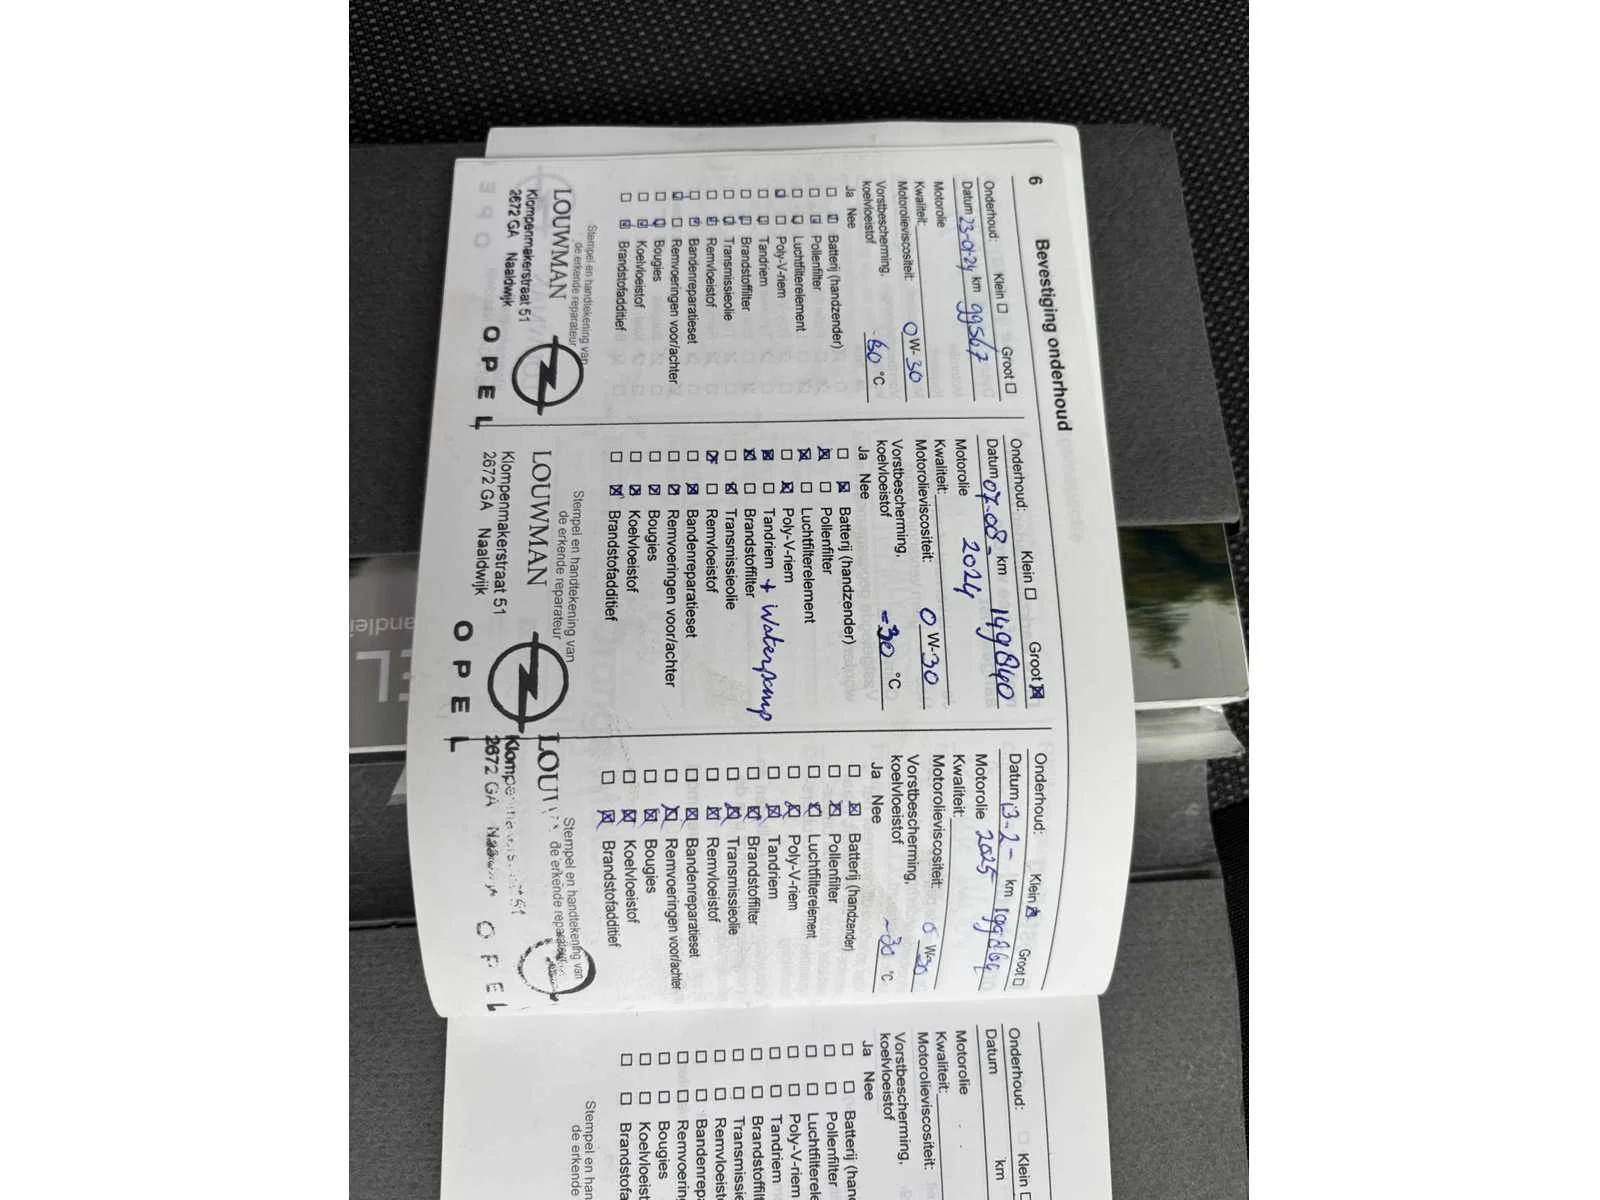 6
Bevestiging onderhoud
Onderhoud: Klein Groot
Datum 23-01-24 km 99567
Motorolie
Kwaliteit:
Motorolieviscositeit: 0 W- 30
Vorstbescherming,
koelvloeistof -30 °C
Ja Nee
Batterij (handzender)
Pollenfilter
Luchtfilterelement
Poly-V-riem
Tandriem
Brandstoffilter
Transmissieolie
Remvloeistof
Bandenreparatieset
Remvoeringen voor/achter
Bougies
Koelvloeistof
Brandstofadditief
Stempel en handtekening van
de erkende reparateur
LOUWMAN
Klompenmakerstraat 51
2672 GA Naaldwijk
OPEL
Onderhoud: Klein Groot
Datum 07-08- km 149840
Motorolie 2024
Kwaliteit:
Motorolieviscositeit: 0 W- 30
Vorstbescherming,
koelvloeistof -30 °C
Ja Nee
Batterij (handzender)
Pollenfilter
Luchtfilterelement
Poly-V-riem
Tandriem + Waterpomp
Brandstoffilter
Transmissieolie
Remvloeistof
Bandenreparatieset
Remvoeringen voor/achter
Bougies
Koelvloeistof
Brandstofadditief
Stempel en handtekening van
de erkende reparateur
LOUWMAN
Klompenmakerstraat 51
2672 GA Naaldwijk
OPEL
Onderhoud: Klein Groot
Datum 13-2- km
Motorolie 2025
Kwaliteit:
Motorolieviscositeit: 0 W- 30
Vorstbescherming,
koelvloeistof -30 °C
Ja Nee
Batterij (handzender)
Pollenfilter
Luchtfilterelement
Poly-V-riem
Tandriem
Brandstoffilter
Transmissieolie
Remvloeistof
Bandenreparatieset
Remvoeringen voor/achter
Bougies
Koelvloeistof
Brandstofadditief
Stempel en handtekening van
de erkende reparateur
2672 GA
OPEL
Onderhoud: Klein
Datum km
Motorolie
Kwaliteit:
Motorolieviscositeit:
Vorstbescherming,
koelvloeistof
Ja Nee
Batterij (han
Pollenfilter
Luchtfiltere
Poly-V-rie
Tandriem
Brandstof
Transmiss
Remvloeist
Bandenrep
Remvoering
Bougies
Koelvloeist
Brandstofa
Stempel en han
de erkende